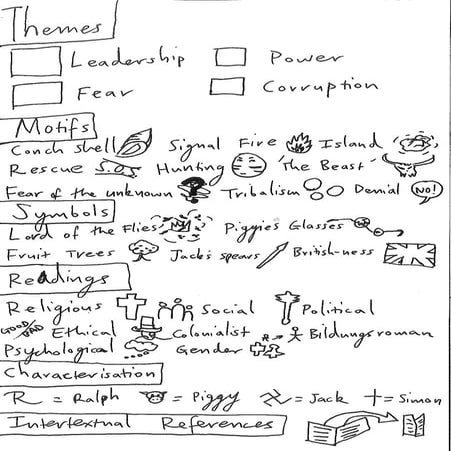 Themes
Leadership Power
Fear Corruption
Motifs
Conch shell Signal Fire Island
Rescue S.O.S Hunting 'The Beast'
Fear of the unknown Tribalism Denial NO!
Symbols
Lord of the Flies Piggies Glasses
Fruit Trees Jack's spears British-ness
Readings
Religious Social Political
GOOD/BAD Ethical Colonialist Bildungsroman
Psychological Gender
Characterisation
R = Ralph = Piggy = Jack = Simon
Intertextual References